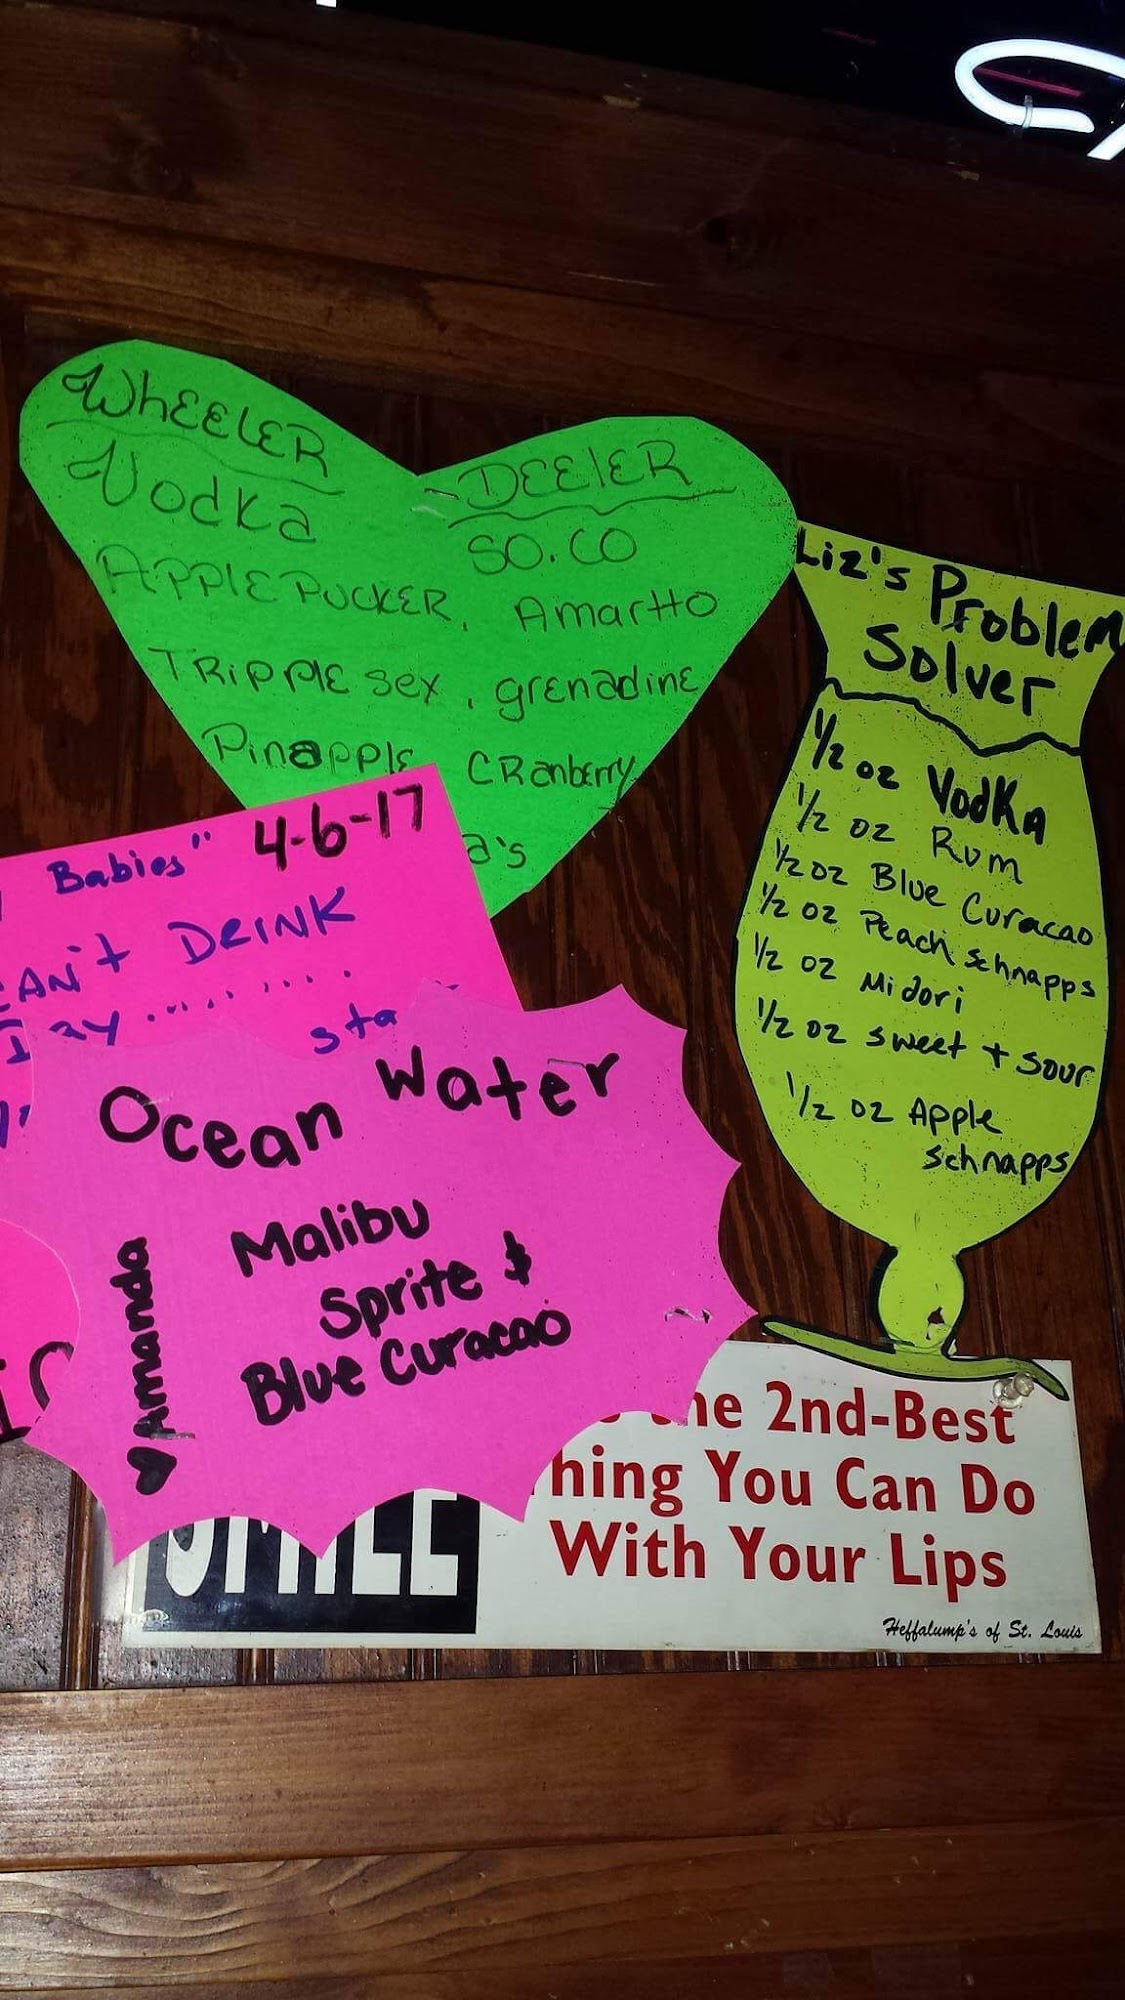 WHEELER - DEELER
Vodka SO.CO
APPLE PUCKER, Amartto
TRIPPLE SEX, grenadine
Pinapple CRanberry
a's
Babies" 4-6-17
DRINK
sta
Ocean Water
Malibu
Sprite &
Blue Curacao
♥Amanda
Liz's Problem
Solver
1/2 oz Vodka
1/2 oz Rum
1/2 oz Blue Curacao
1/2 oz Peach Schnapps
1/2 oz Midori
1/2 oz sweet + sour
1/2 oz Apple
Schnapps
SMILE
the 2nd-Best
hing You Can Do
With Your Lips
Heffalump's of St. Louis